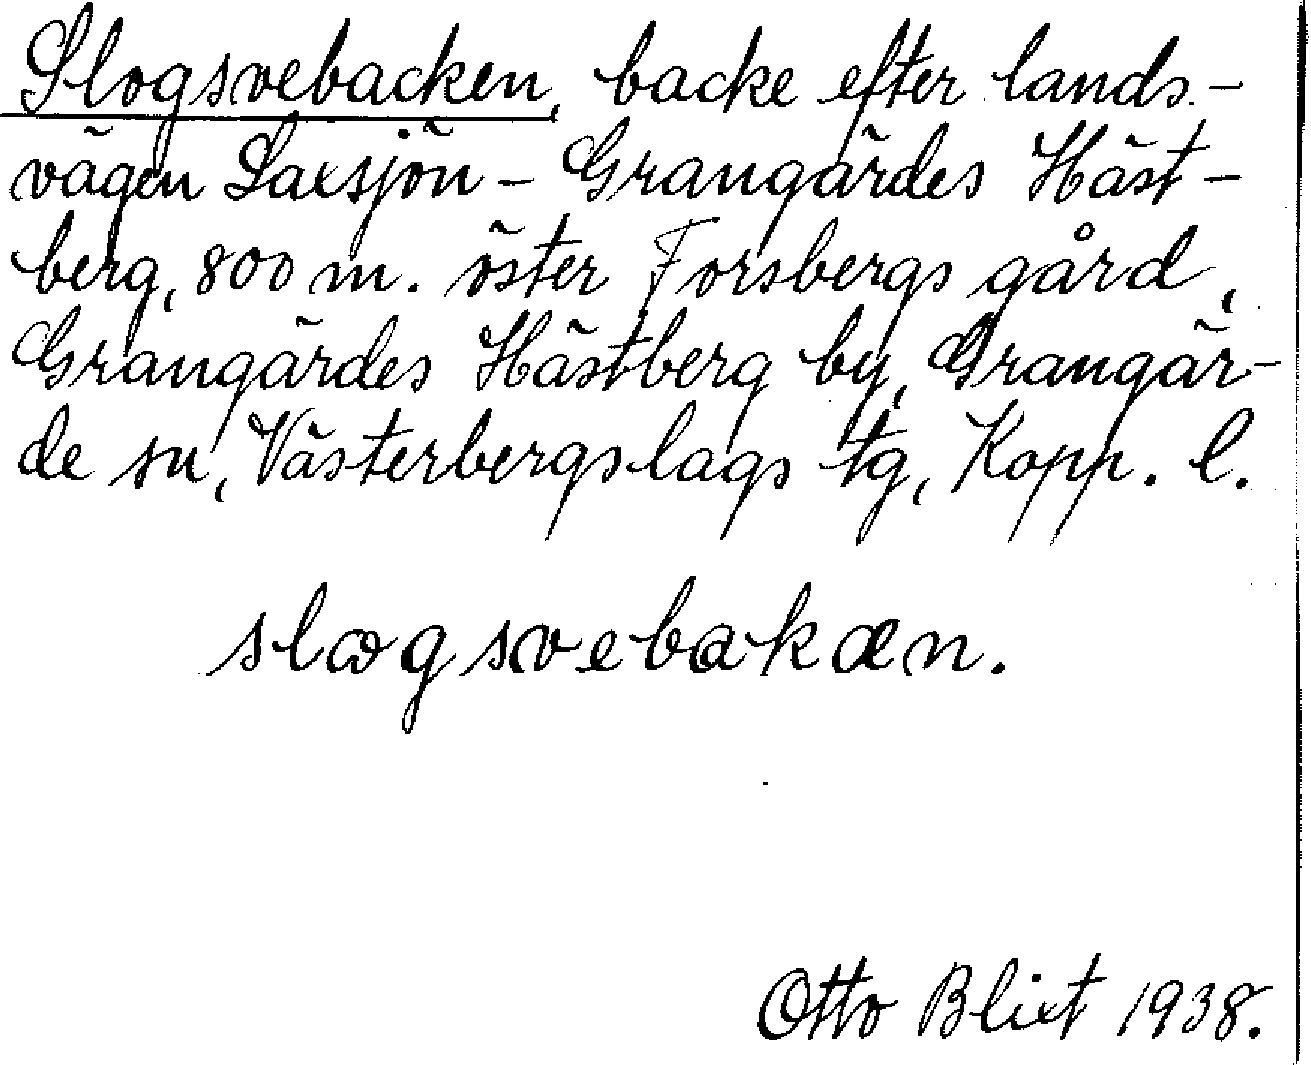 Slogsvebacken, backe efter lands-
vägen Laxsjön - Grangärdes Häst-
berg, 800 m. öster Forsbergs gård,
Grangärdes Hästberg by, Grangär-
de sn, Västerbergslags tg, Kopp. l.
slogsvebakæn.
Otto Blixt 1938.